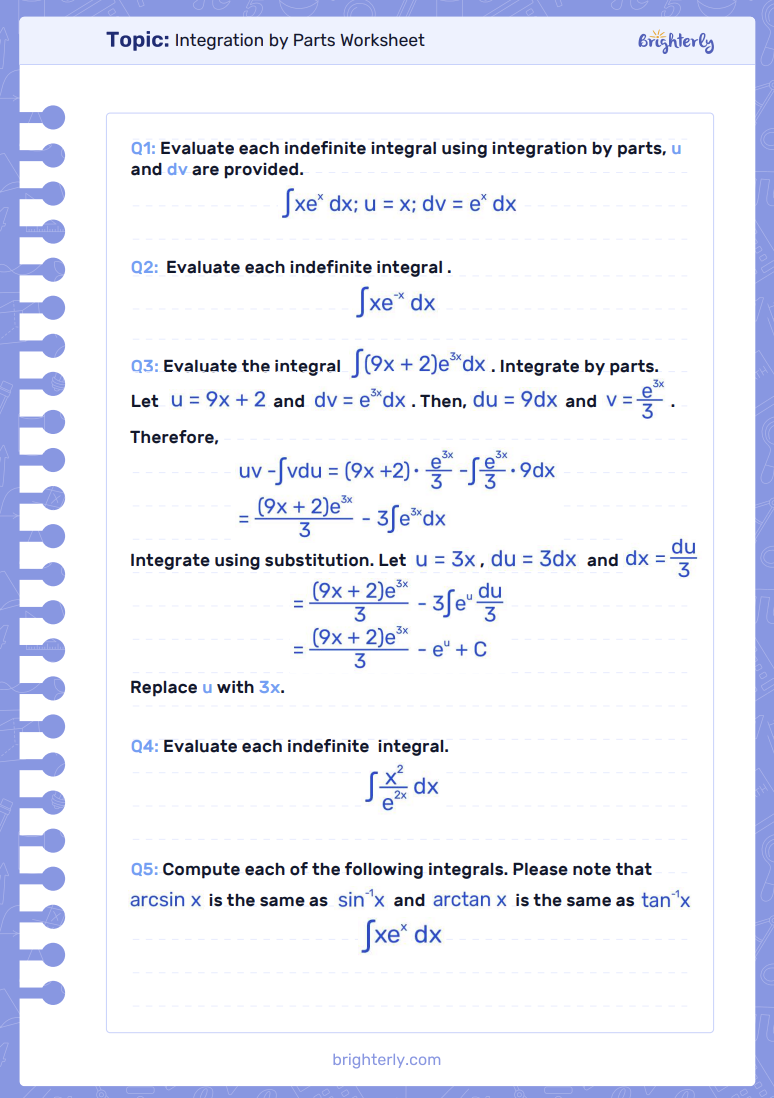 Topic: Integration by Parts Worksheet
Brighterly
Q1: Evaluate each indefinite integral using integration by parts, u
and dv are provided.
∫xeˣ dx; u = x; dv = eˣ dx
Q2: Evaluate each indefinite integral .
∫xe⁻ˣ dx
Q3: Evaluate the integral ∫(9x + 2)e³ˣdx . Integrate by parts.
Let u = 9x + 2 and dv = e³ˣdx . Then, du = 9dx and v = e³ˣ/3 .
Therefore,
uv -∫vdu = (9x +2) · e³ˣ/3 -∫e³ˣ/3 · 9dx
= (9x + 2)e³ˣ/3 - 3∫e³ˣdx
Integrate using substitution. Let u = 3x , du = 3dx and dx = du/3
= (9x + 2)e³ˣ/3 - 3∫eᵘ du/3
= (9x + 2)e³ˣ/3 - eᵘ + C
Replace u with 3x.
Q4: Evaluate each indefinite integral.
∫x²/e²ˣ dx
Q5: Compute each of the following integrals. Please note that
arcsin x is the same as sin⁻¹x and arctan x is the same as tan⁻¹x
∫xeˣ dx
brighterly.com